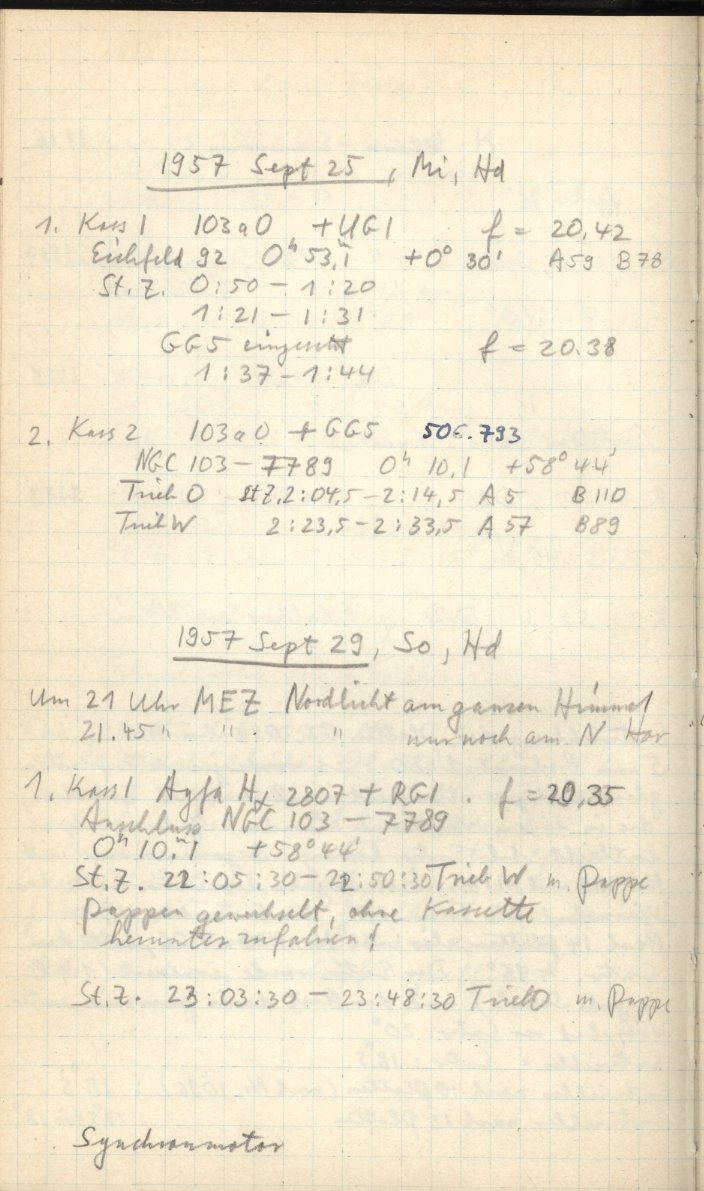 1957 Sept 25, Mi, Hd
1. Kass 1 103aO + UG1 f = 20,42
Eichfeld 92 0ʰ 53,ᵐ1 +0° 30' A59 B78
St.Z. 0:50 – 1:20
1:21 – 1:31
GG5 eingesetzt f = 20.38
1:37 – 1:44
2. Kass 2 103aO + GG5 506.793
NGC 103 – 7789 0ʰ 10,1 +58° 44'
Trieb O StZ. 2:04,5 – 2:14,5 A5 B110
Trieb W 2:23,5 – 2:33,5 A57 B89
1957 Sept 29, So, Hd
Um 21 Uhr MEZ Nordlicht am ganzen Himmel
21.45 " " " nur noch am N Hor
1. Kass 1 Agfa Hα 2807 + RG1 . f = 20,35
Anschluss NGC 103 – 7789
0ʰ 10,ᵐ1 +58° 44'
St.Z. 22:05:30 – 22:50:30 Trieb W m. Pappe
Pappen gewechselt, ohne Kassette
herunterzufahren!
St.Z. 23:03:30 – 23:48:30 Trieb O m. Pappe
Synchronmotor